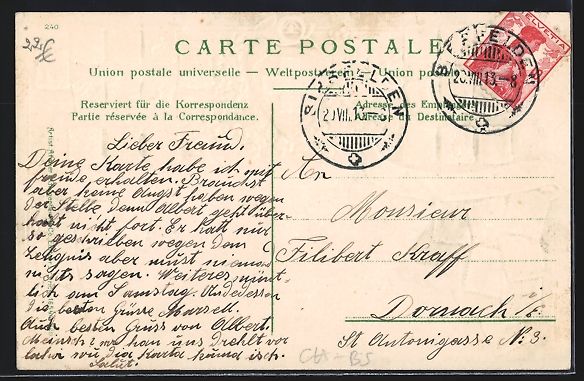 240
22.-
CARTE POSTALE
Union postale universelle — Weltpostverein — Union postale
Reserviert für die Korrespondenz
Partie réservée à la Correspondance.
Adresse des Empfängers
Adresse du Destinataire.
HELVETIA
BIRSFELDEN
20.VIII.13.-8
BIRSFELDEN
20.VIII.13.-8
Lieber Freund.
Deine Karte habe ich mit
freude erhalten. Brauchst
aber keine Angst haben wegen
der Stelle denn Albert geht über
haubt nicht fort. Er hat nur
so geschrieben wegen dem
Zeugnis aber must nieman
nichts sagen. Weiteres münt-
lich am Samstag. Undedessen
die besten Grüsse Marsell.
Auch besten Gruss von Albert.
han uns Drehlt vor
wie die Karte isch.
Salut.
An
Monsieur
Filibert Kraff
Dornach i/E
St Antonigasse No. 3.
CH-BS